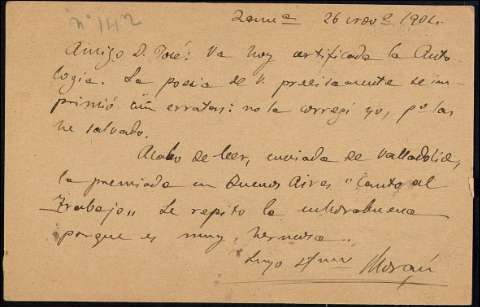 nº 142
26 novᵉ 190
Amigo D. José: Va hoy certificada la Anto-
logía. La poesía de V. precisamente se im-
primió con erratas: no la corregí yo, pº las
he salvado.
Acabo de leer, enviada de Valladolid,
la premiada en Buenos Aires "Canto al
Trabajo" Le repito la enhorabuena
porque es muy hermosa.
Suyo affmo